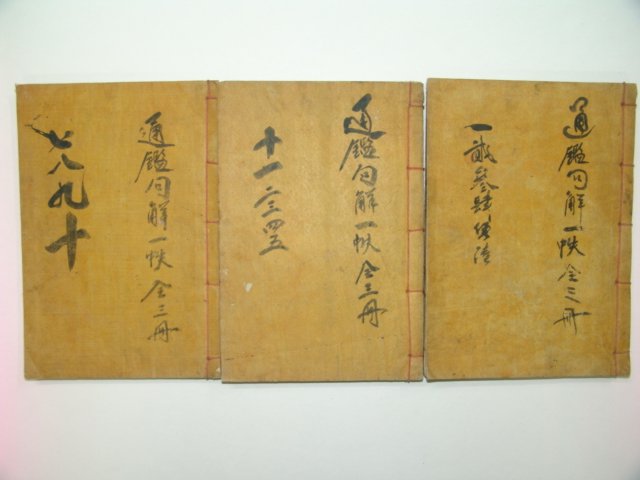 通鑑句解一帙 全三冊
一貳參肆伍陸
通鑑句解一帙 全三冊
十一二三四五
通鑑句解一帙 全三冊
七八九十